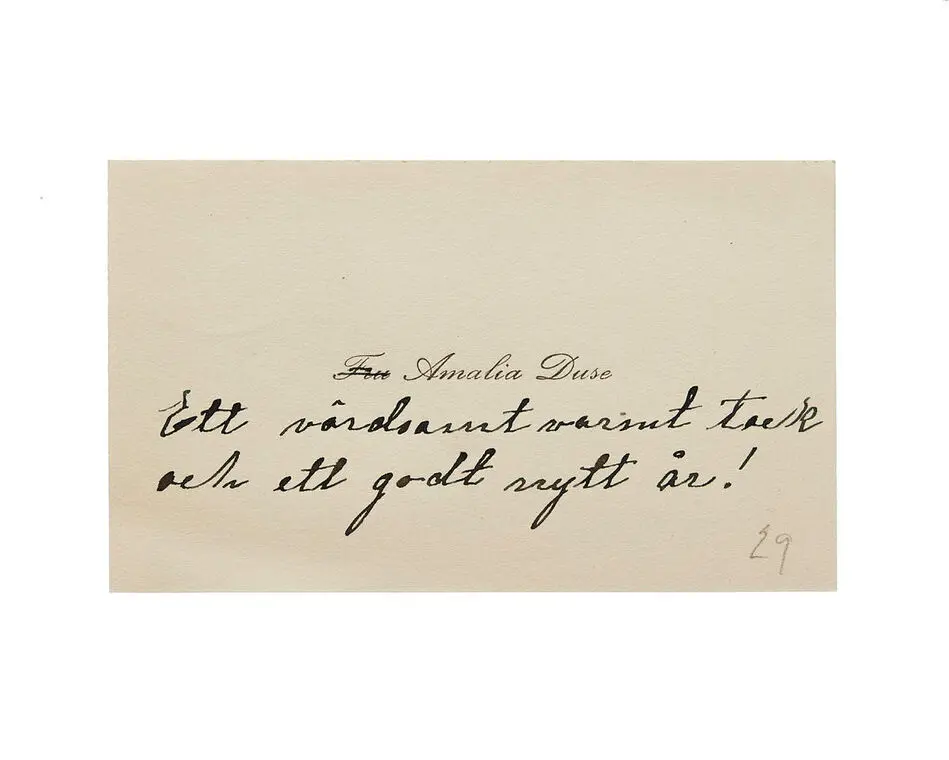 Fru Amalia Duse
Ett vördsamt varmt tack
och ett godt nytt år!
29